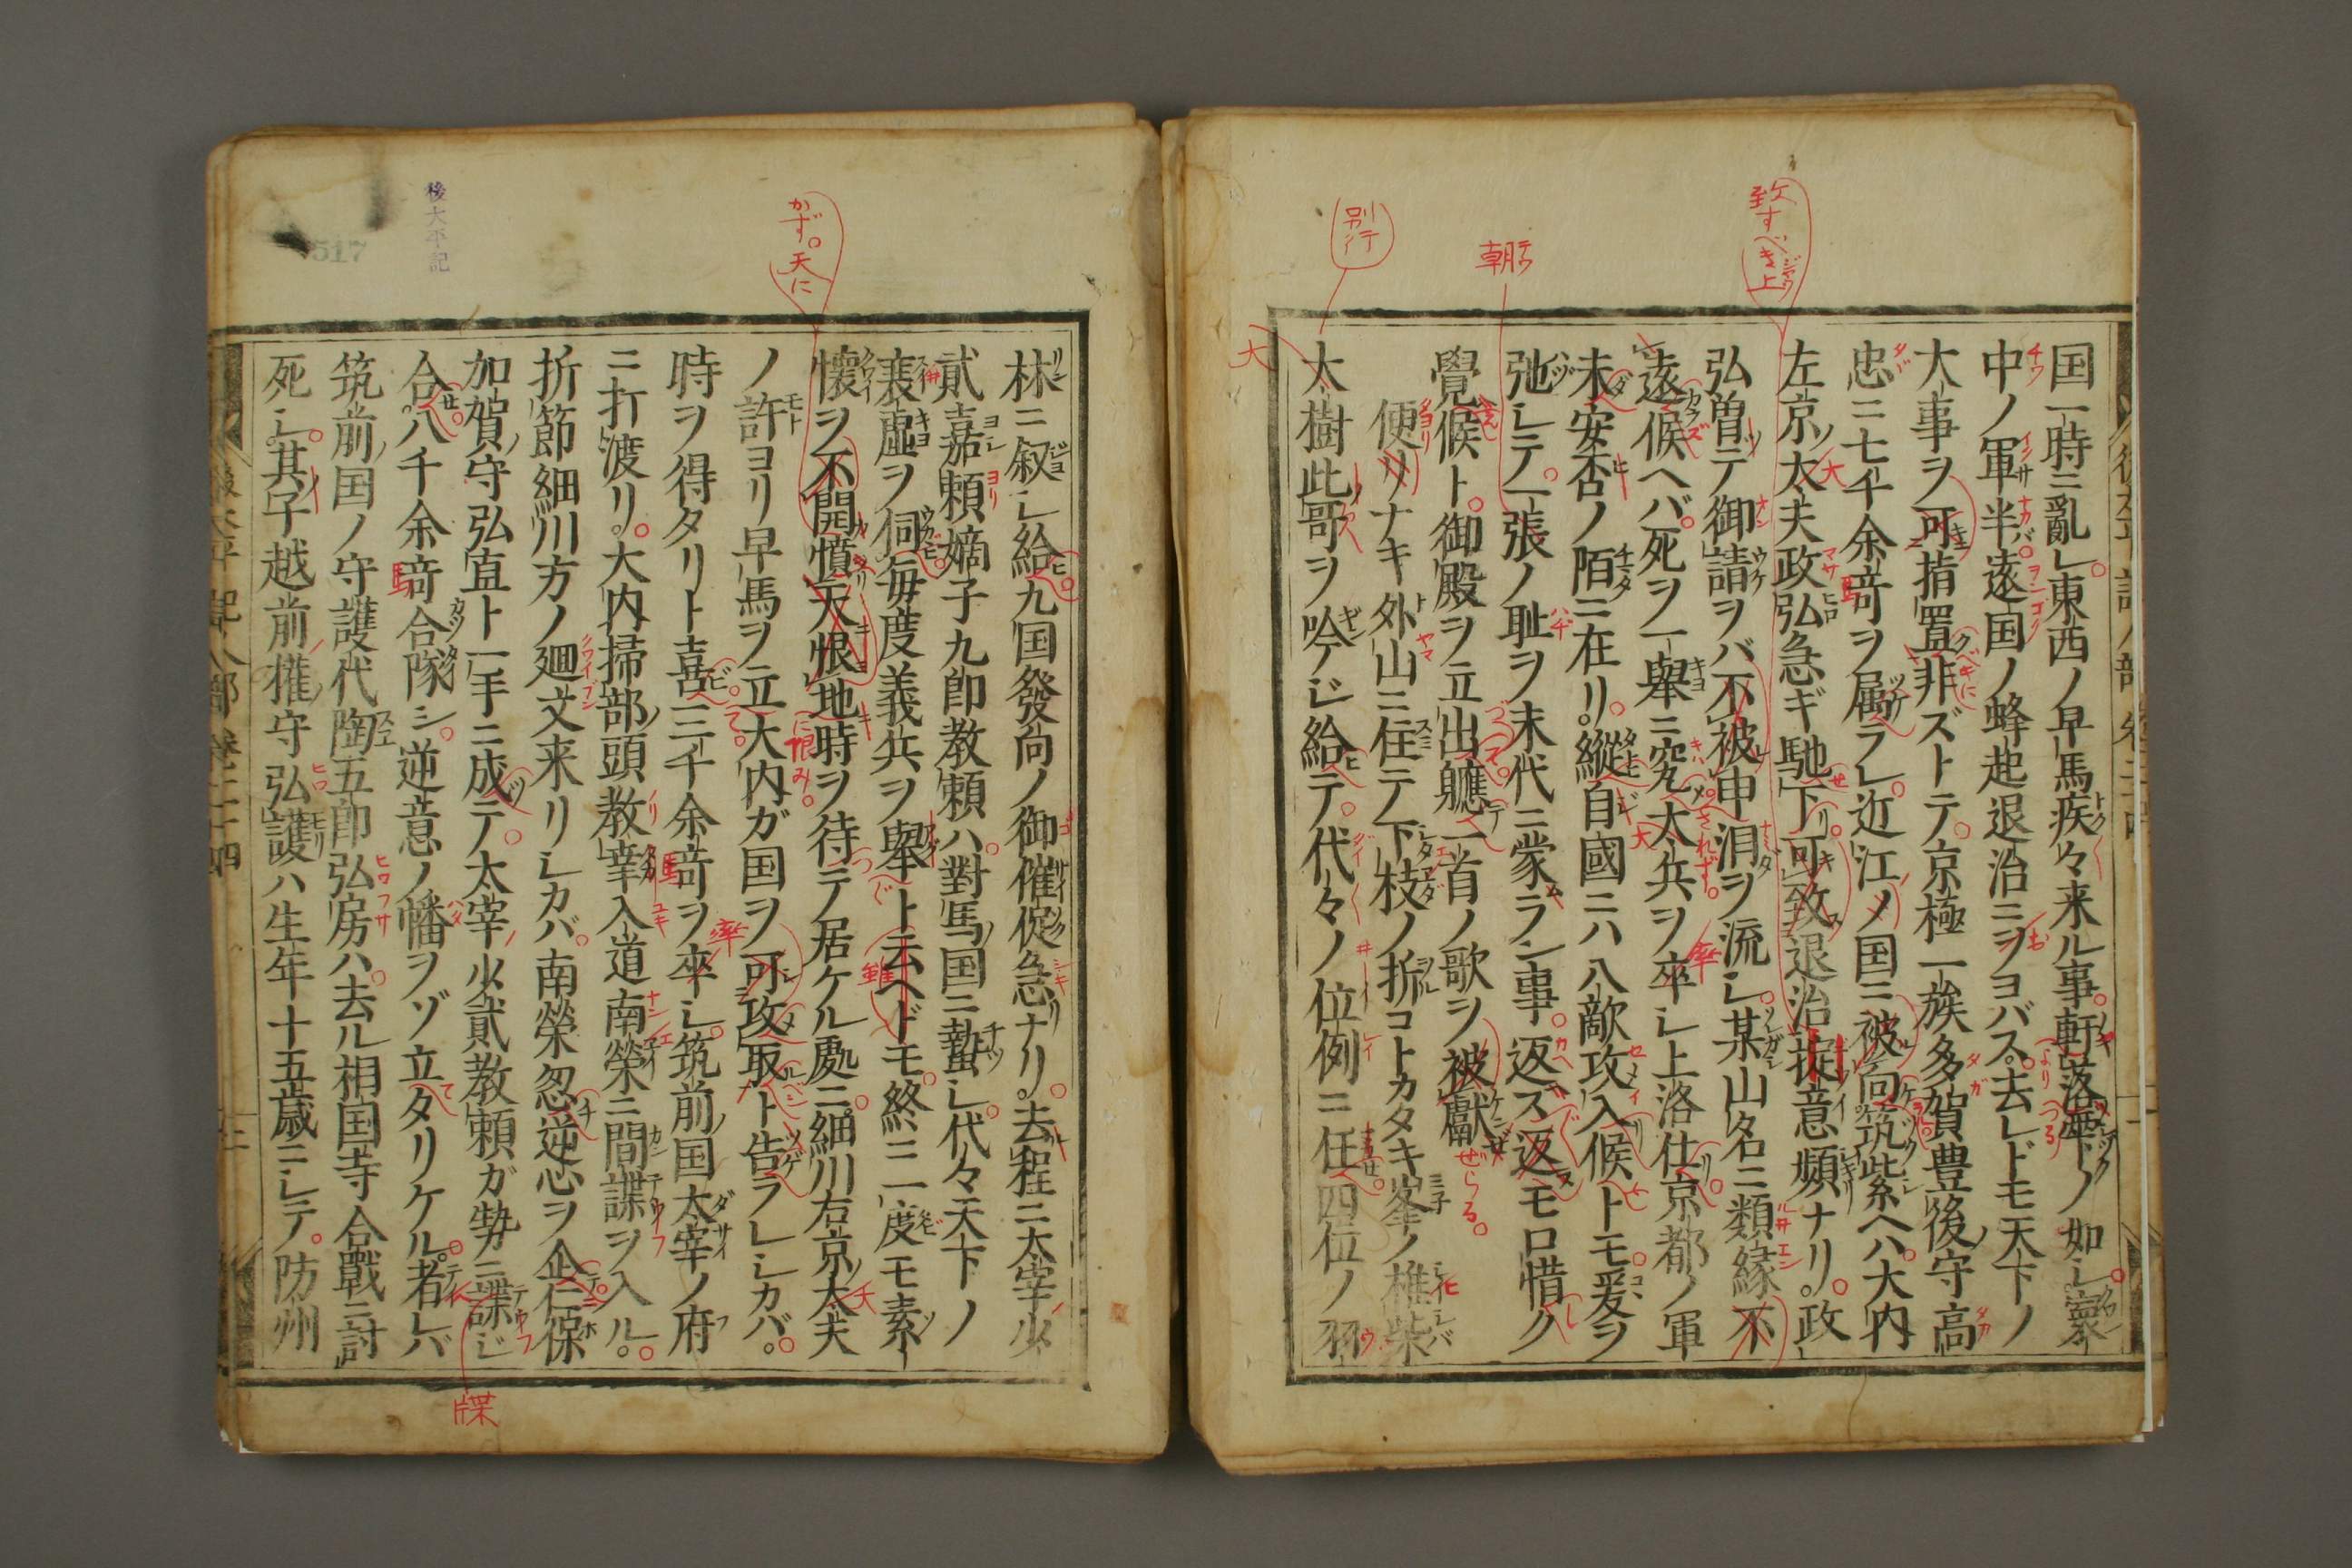 国一時ニ亂レ東西ノ早馬疾々来ル事軒落雫ノ如シ寰
中ノ軍半遠国ノ蜂起退治ニヲヨバス去レドモ天下ノ
大事ヲ可指置非ズトテ京極一族多賀豊後守高
忠ニ七千余竒ヲ属ラレ近江ノ国ニ被向筑紫ヘハ大内
左京ノ太夫政弘急ギ馳下可致退治掟意頻ナリ政
弘曽テ御請ヲバ不被申涓ヲ流シ某山名ニ類縁不
遠候ヘバ死ヲ一擧ニ究太兵ヲ卒シ上洛仕京都ノ軍
未安否ノ陌ニ在リ縱自國ニハ敵攻入候トモ爰ヲ
弛シテ一張ノ耻ヲ末代ニ蒙ラン事返ス返モ口惜ク
覺候ト御殿ヲ立出軈一首ノ歌ヲ被獻
便リナキ外山ニ住テ下枝ノ折コトカタキ峯ノ椎柴
大樹此哥ヲ吟じ給テ代々ノ位例ニ任四位ノ羽
致すべき上
朝テウ
別行
大
林ニ叙シ給九国發向ノ御催促急ナリ去程ニ太宰少
貳嘉頼嫡子九郎教頼ハ對馬国ニ蟄シ代々天下ノ
襄虚ヲ伺毎度義兵ヲ擧ト云ヘドモ終ニ一度モ素
懷ヲ不開憤天恨地時ヲ待テ居ケル處ニ細川右京ノ太夫
ノ許ヨリ早馬ヲ立大内ガ国ヲ可攻取ト告ラレシカバ
時ヲ得タリト喜三千余竒ヲ卒シ筑前国太宰ノ府
ニ打渡リ大内掃部頭教幸入道南榮ニ間諜ヲ入ル
折節細川方ノ廻文来リシカバ南榮忽逆心ヲ企仁保
加賀守弘直ト一手ニ成テ太宰少貳教頼ガ勢ニ諜じ
合八千余竒合隊シ逆意ノ幡ヲゾ立タリケル者レバ
筑前国ノ守護代陶五郎弘房ハ去ル相国寺合戰ニ討
死シ其子越前權守弘護ハ生年十五歳ニシテ防州
かず。天に
後太平記
517
牒